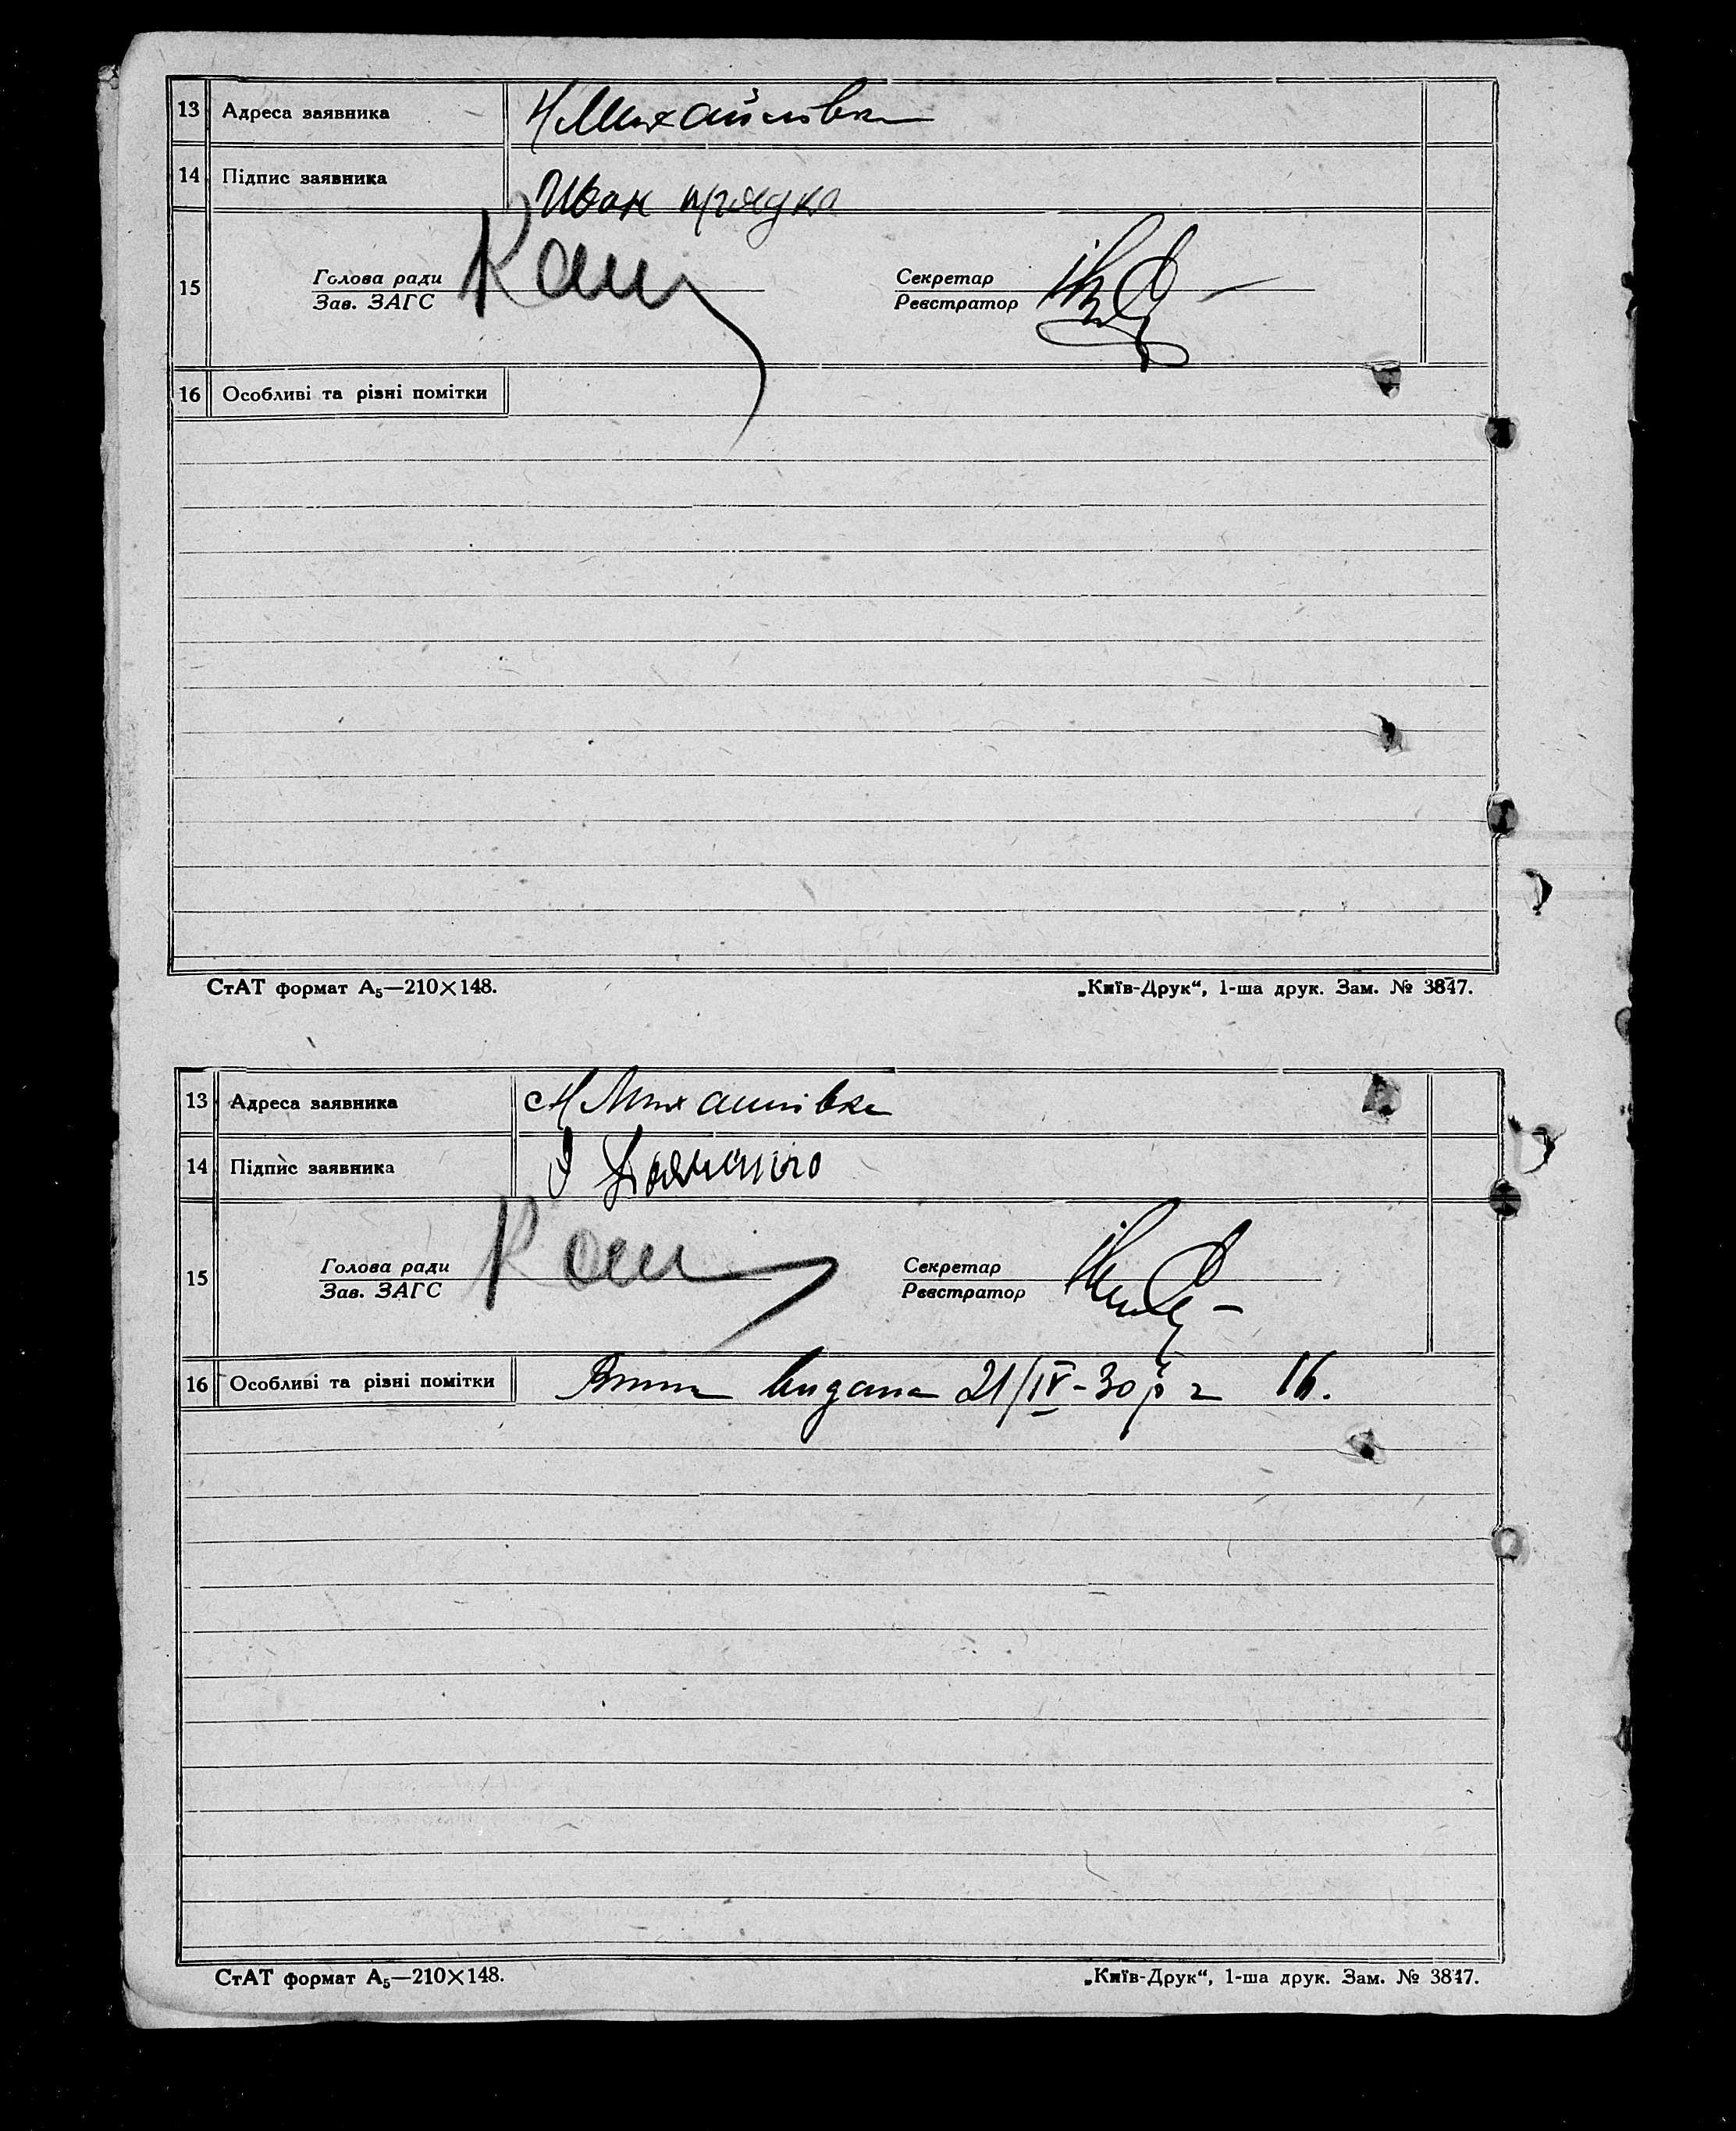 13 Адреса заявника Н Михайлівка
14 Підпис заявника Иван прядка
15 Голова ради Секретар
Зав. ЗАГС Реєстратор
16 Особливі та різні помітки
СтАТ формат А₅—210×148. „Київ-Друк“, 1-ша друк. Зам. № 3847.
13 Адреса заявника Н Михайлівка
14 Підпис заявника
15 Голова ради Секретар
Зав. ЗАГС Реєстратор
16 Особливі та різні помітки видана 21/IV-30 р
СтАТ формат А₅—210×148. „Київ-Друк“, 1-ша друк. Зам. № 3847.